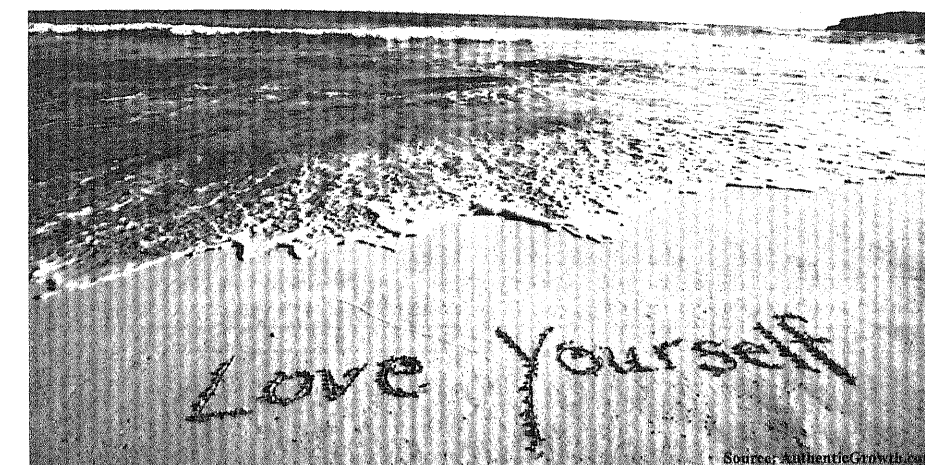 Love Yourself
Source: AuthenticGrowth.co